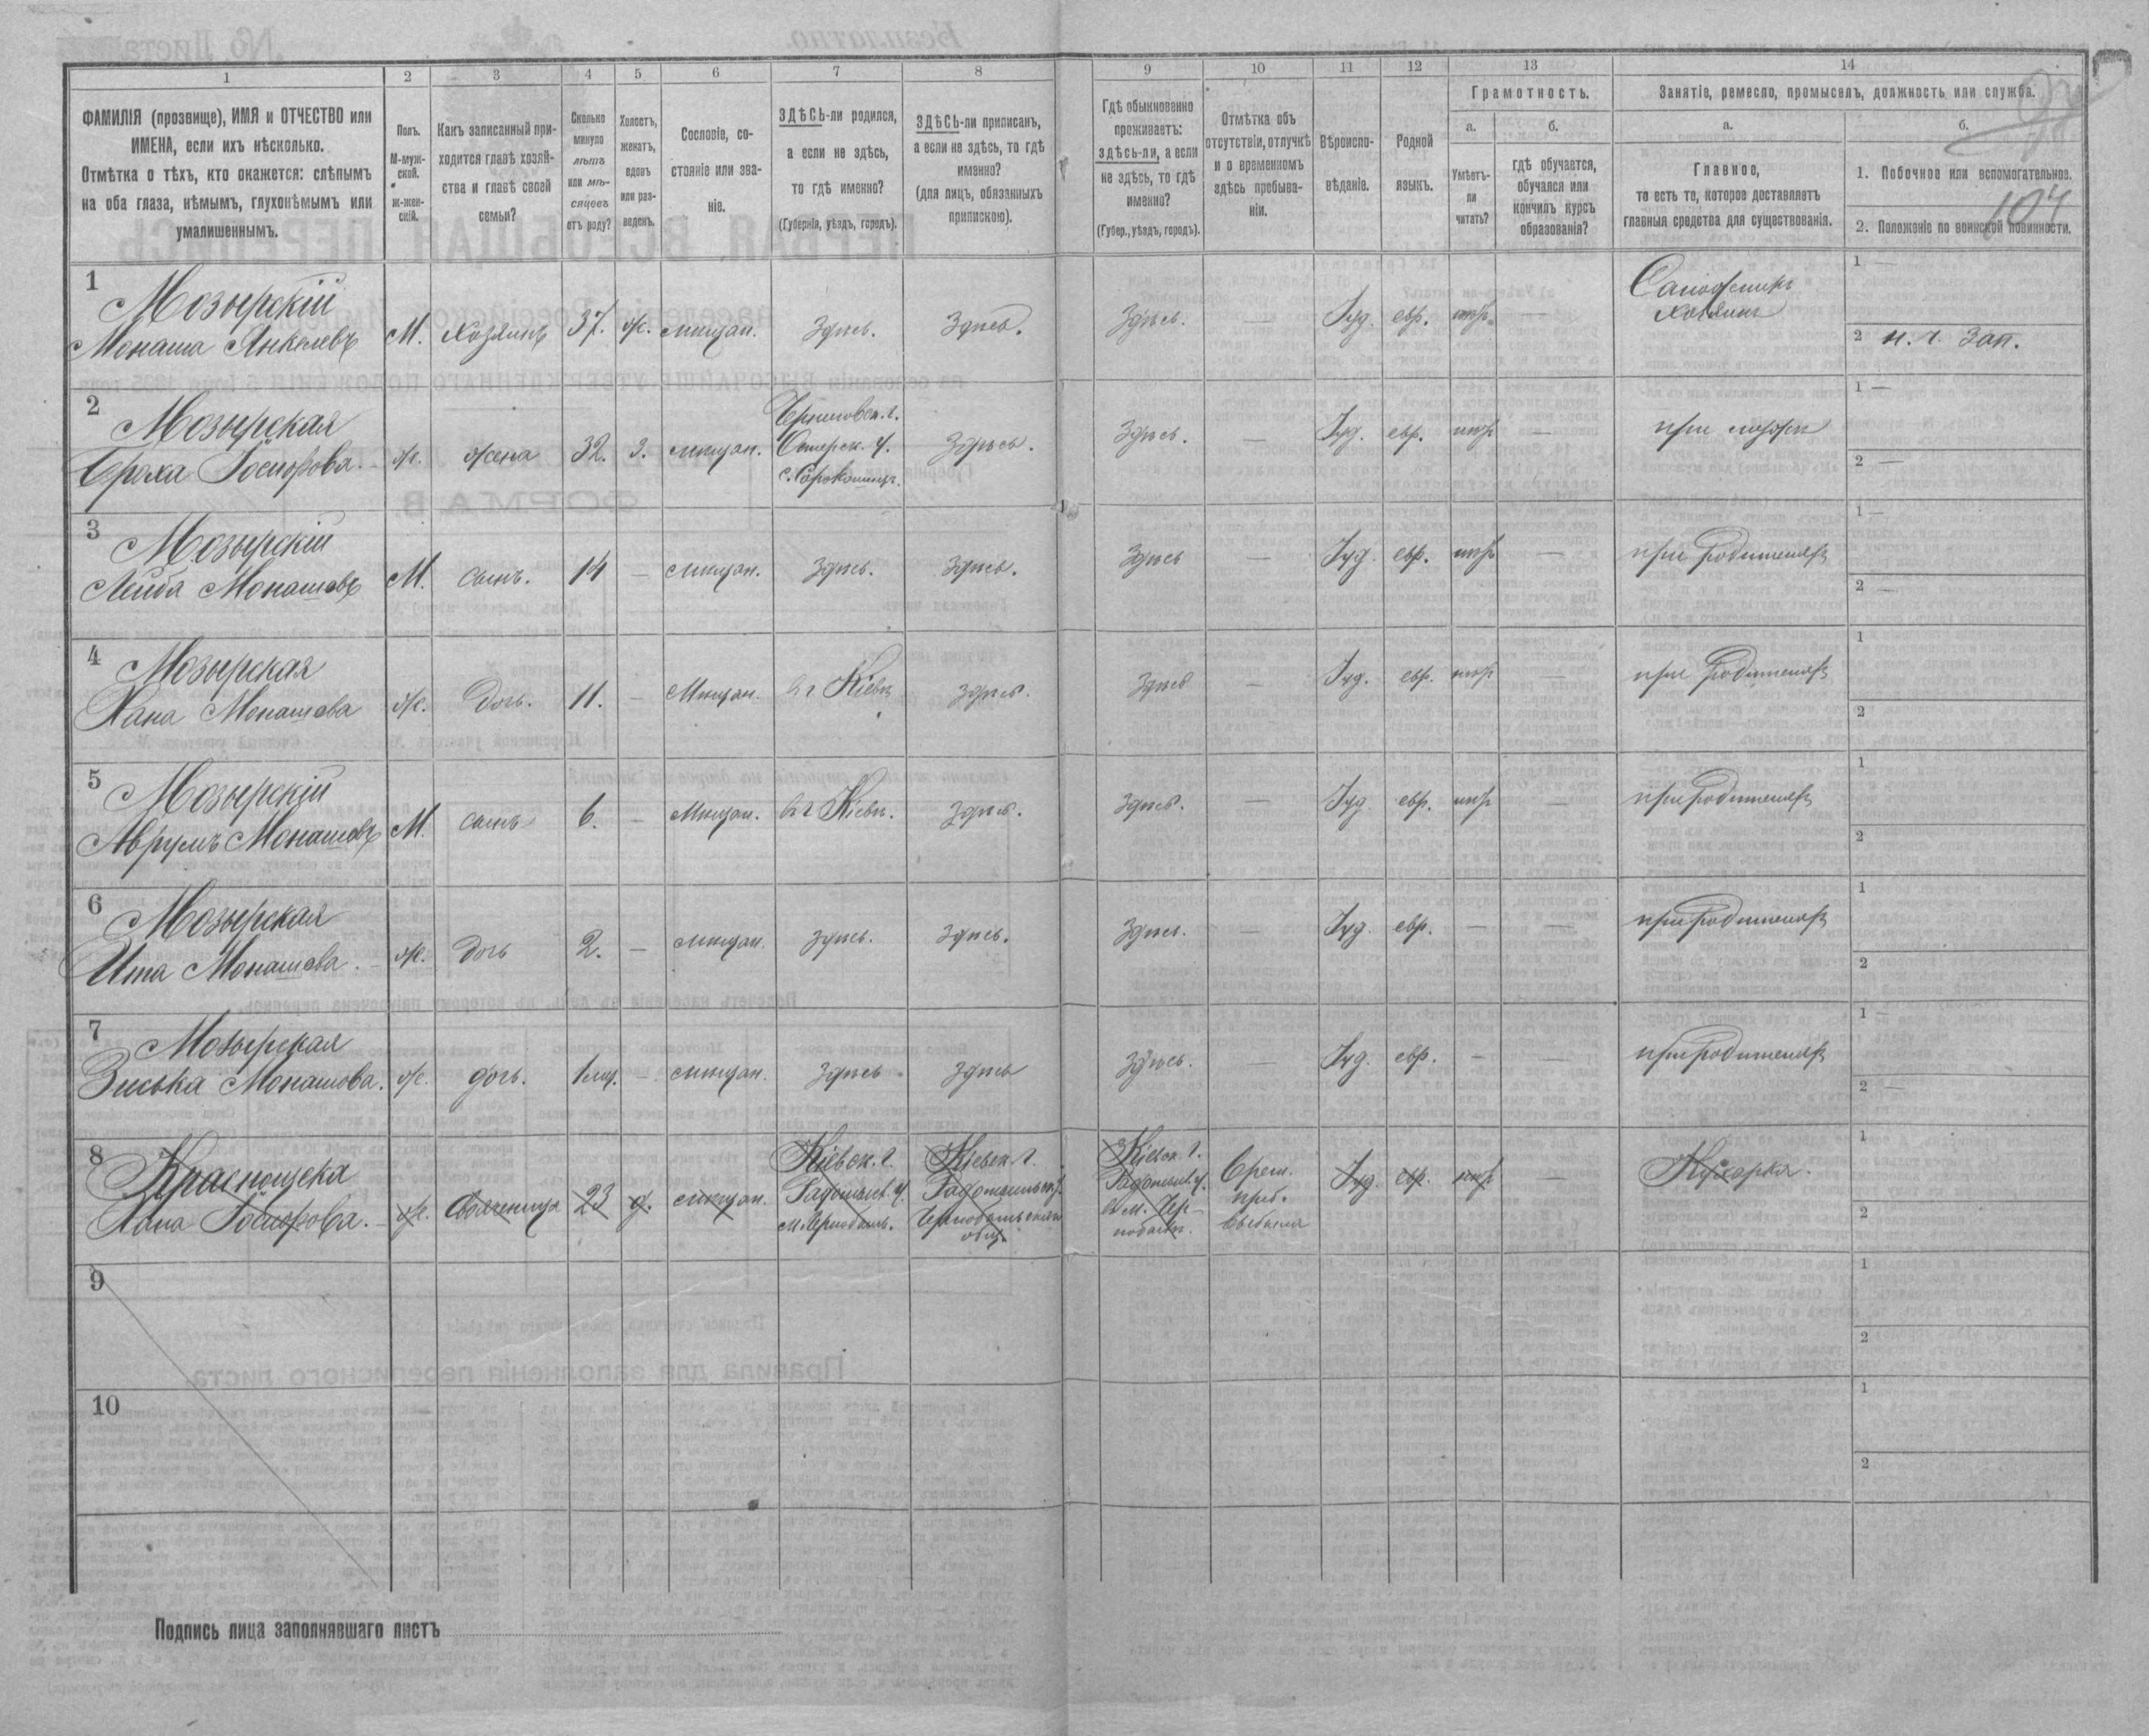 1
2
3
4
5
6
7
8
9
10
11
12
13
14
ФАМИЛІЯ (прозвище), ИМЯ и ОТЧЕСТВО или
ИМЕНА, если ихъ нѣсколько.
Отмѣтка о тѣхъ, кто окажется: слѣпымъ
на оба глаза, нѣмымъ, глухонѣмымъ или
умалишеннымъ.
Полъ.
М-муж-
ской.
ж-жен-
скій.
Какъ записанный при-
ходится главѣ хозяй-
ства и главѣ своей
семьи?
Сколько
минуло
лѣтъ
или мѣ-
сяцевъ
отъ роду?
Холостъ,
женатъ,
вдовъ
или раз-
веденъ.
Сословіе, со-
стояніе или зва-
ніе.
ЗДѢСЬ-ли родился,
а если не здѣсь,
то гдѣ именно?
(Губернія, уѣздъ, городъ).
ЗДѢСЬ-ли приписанъ,
а если не здѣсь, то гдѣ
именно?
(для лицъ, обязанныхъ
припискою).
Гдѣ обыкновенно
проживаетъ:
здѣсь-ли, а если
не здѣсь, то гдѣ
именно?
(Губер., уѣздъ, городъ).
Отмѣтка объ
отсутствіи, отлучкѣ
и о временномъ
здѣсь пребыва-
ніи.
Вѣроиспо-
вѣданіе.
Родной
языкъ.
Грамотность.
а.
Умѣетъ-
ли
читать?
б.
гдѣ обучается,
обучался или
кончилъ курсъ
образованія?
Занятіе, ремесло, промыселъ, должность или служба.
а.
Главное,
то есть то, которое доставляетъ
главныя средства для существованія.
б.
1. Побочное или вспомогательное.
104
2. Положеніе по воинской повинности.
1
Мозырскій
Монаша Янкелевъ
М. Хозяинъ 37. ж. мѣщан. Здѣсь. Здѣсь. Здѣсь. — Іуд. евр. —
Сапожникъ
хозяинъ
1 —
2 н. ч. зап.
2
Мозырская
Броха Іосифова.
ж. жена 32. з. мѣщан.
Черниговск. г.
Остерск. у.
Здѣсь. Здѣсь. — Іуд. евр. —
при мужѣ
1 —
2 —
3
Мозырскій
Лейба Монашевъ
М. сынъ. 14 — мѣщан. Здѣсь. Здѣсь. Здѣсь — Іуд. евр. —
при родителяхъ
1 —
2 —
4
Мозырская
Хана Монашева
ж. дочь. 11. — мѣщан. в г Кіевѣ здѣсь. Здѣсь — Іуд. евр. —
при родителяхъ
1
2
5
Мозырскій
Аврумъ Монашевъ
М. сынъ 6. — мѣщан. в г Кіевѣ. здѣсь. здѣсь. — Іуд. евр. —
при родителяхъ
1
2
6
Мозырская
Ита Монашева.
ж. дочь 2. — мѣщан. здѣсь. здѣсь. здѣсь. — Іуд. евр. — —
при родителяхъ
1
2
7
Мозырская
Зиська Монашова.
ж. дочь. 1 мѣс. — мѣщан. здѣсь здѣсь здѣсь. — Іуд. евр. — —
при родителяхъ
1 —
2 —
8
Краснощека
Хана Іосифова.
ж. 23 д. мѣщан.
Кіевск. г.
Радомысл. у.
м. Чернобыль.
Кіевск. г.
Кіевск. г.
Радомысл. у.
Врем.
преб.
Іуд. евр. —
Кухарка.
1
2
9
1
2
10
1
2
Подпись лица заполнявшаго листъ